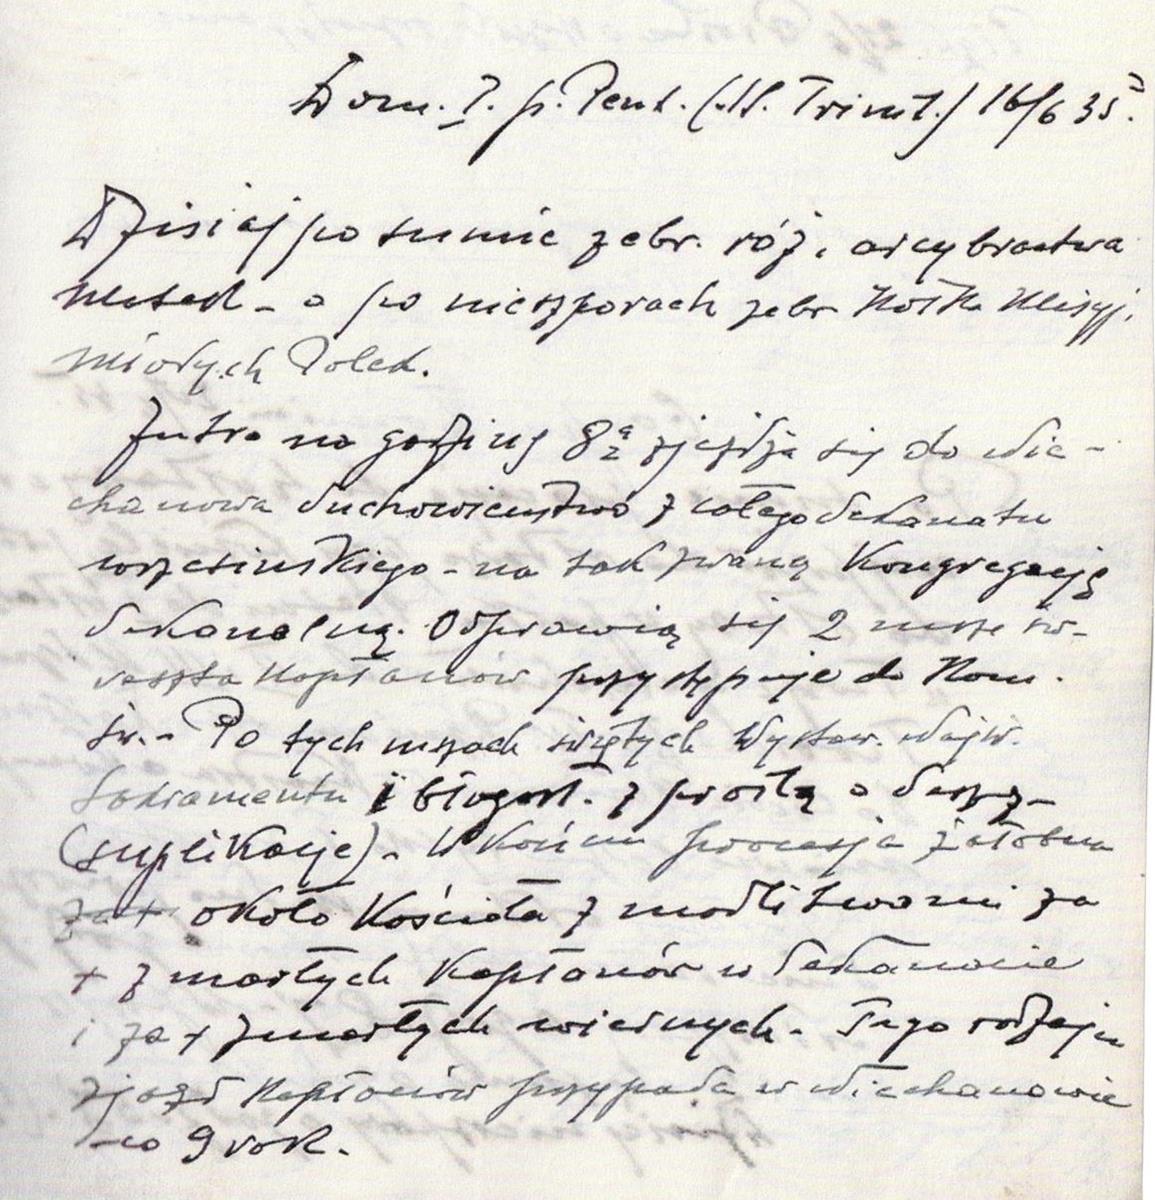 Dom. I. p. Pent. (SS. Trinit.) 16/6 35.
Dzisiaj po sumie zebr. róż. arcybractwa
Matek - a po nieszporach zebr Kółka Misyj.
Młodych Polek.
Jutro na godzinę 8½ zjeżdża się do Nie-
chanowa duchowieństwo z całego dekanatu
wrzesińskiego - na tak zwaną Kongregację
dekanalną. Odprawią się 2 msze św. -
reszta Kapłanów przystępuje do Kom.
św. - Po tych mszach świętych Wystaw. Najśw.
Sakramentu i błogosł. z prośbą o deszcz -
(suplikacje) - W końcu procesja żałobna
za + około Kościoła z modlitwami za
+ zmarłych Kapłanów w dekanacie
i za + zmarłych wiernych - Tego rodzaju
zjazd Kapłanów przypada w Niechanowie
co 9 rok.